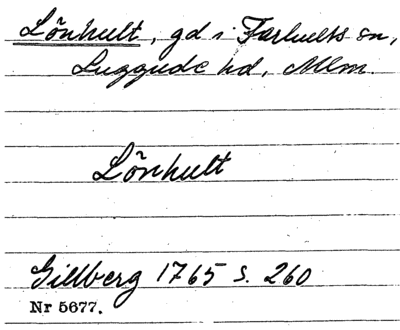 Lönhult, gd i Farhults sn,
Luggude hd, Mlm.
Lönhult
Gillberg 1765 s. 260
Nr 5677.